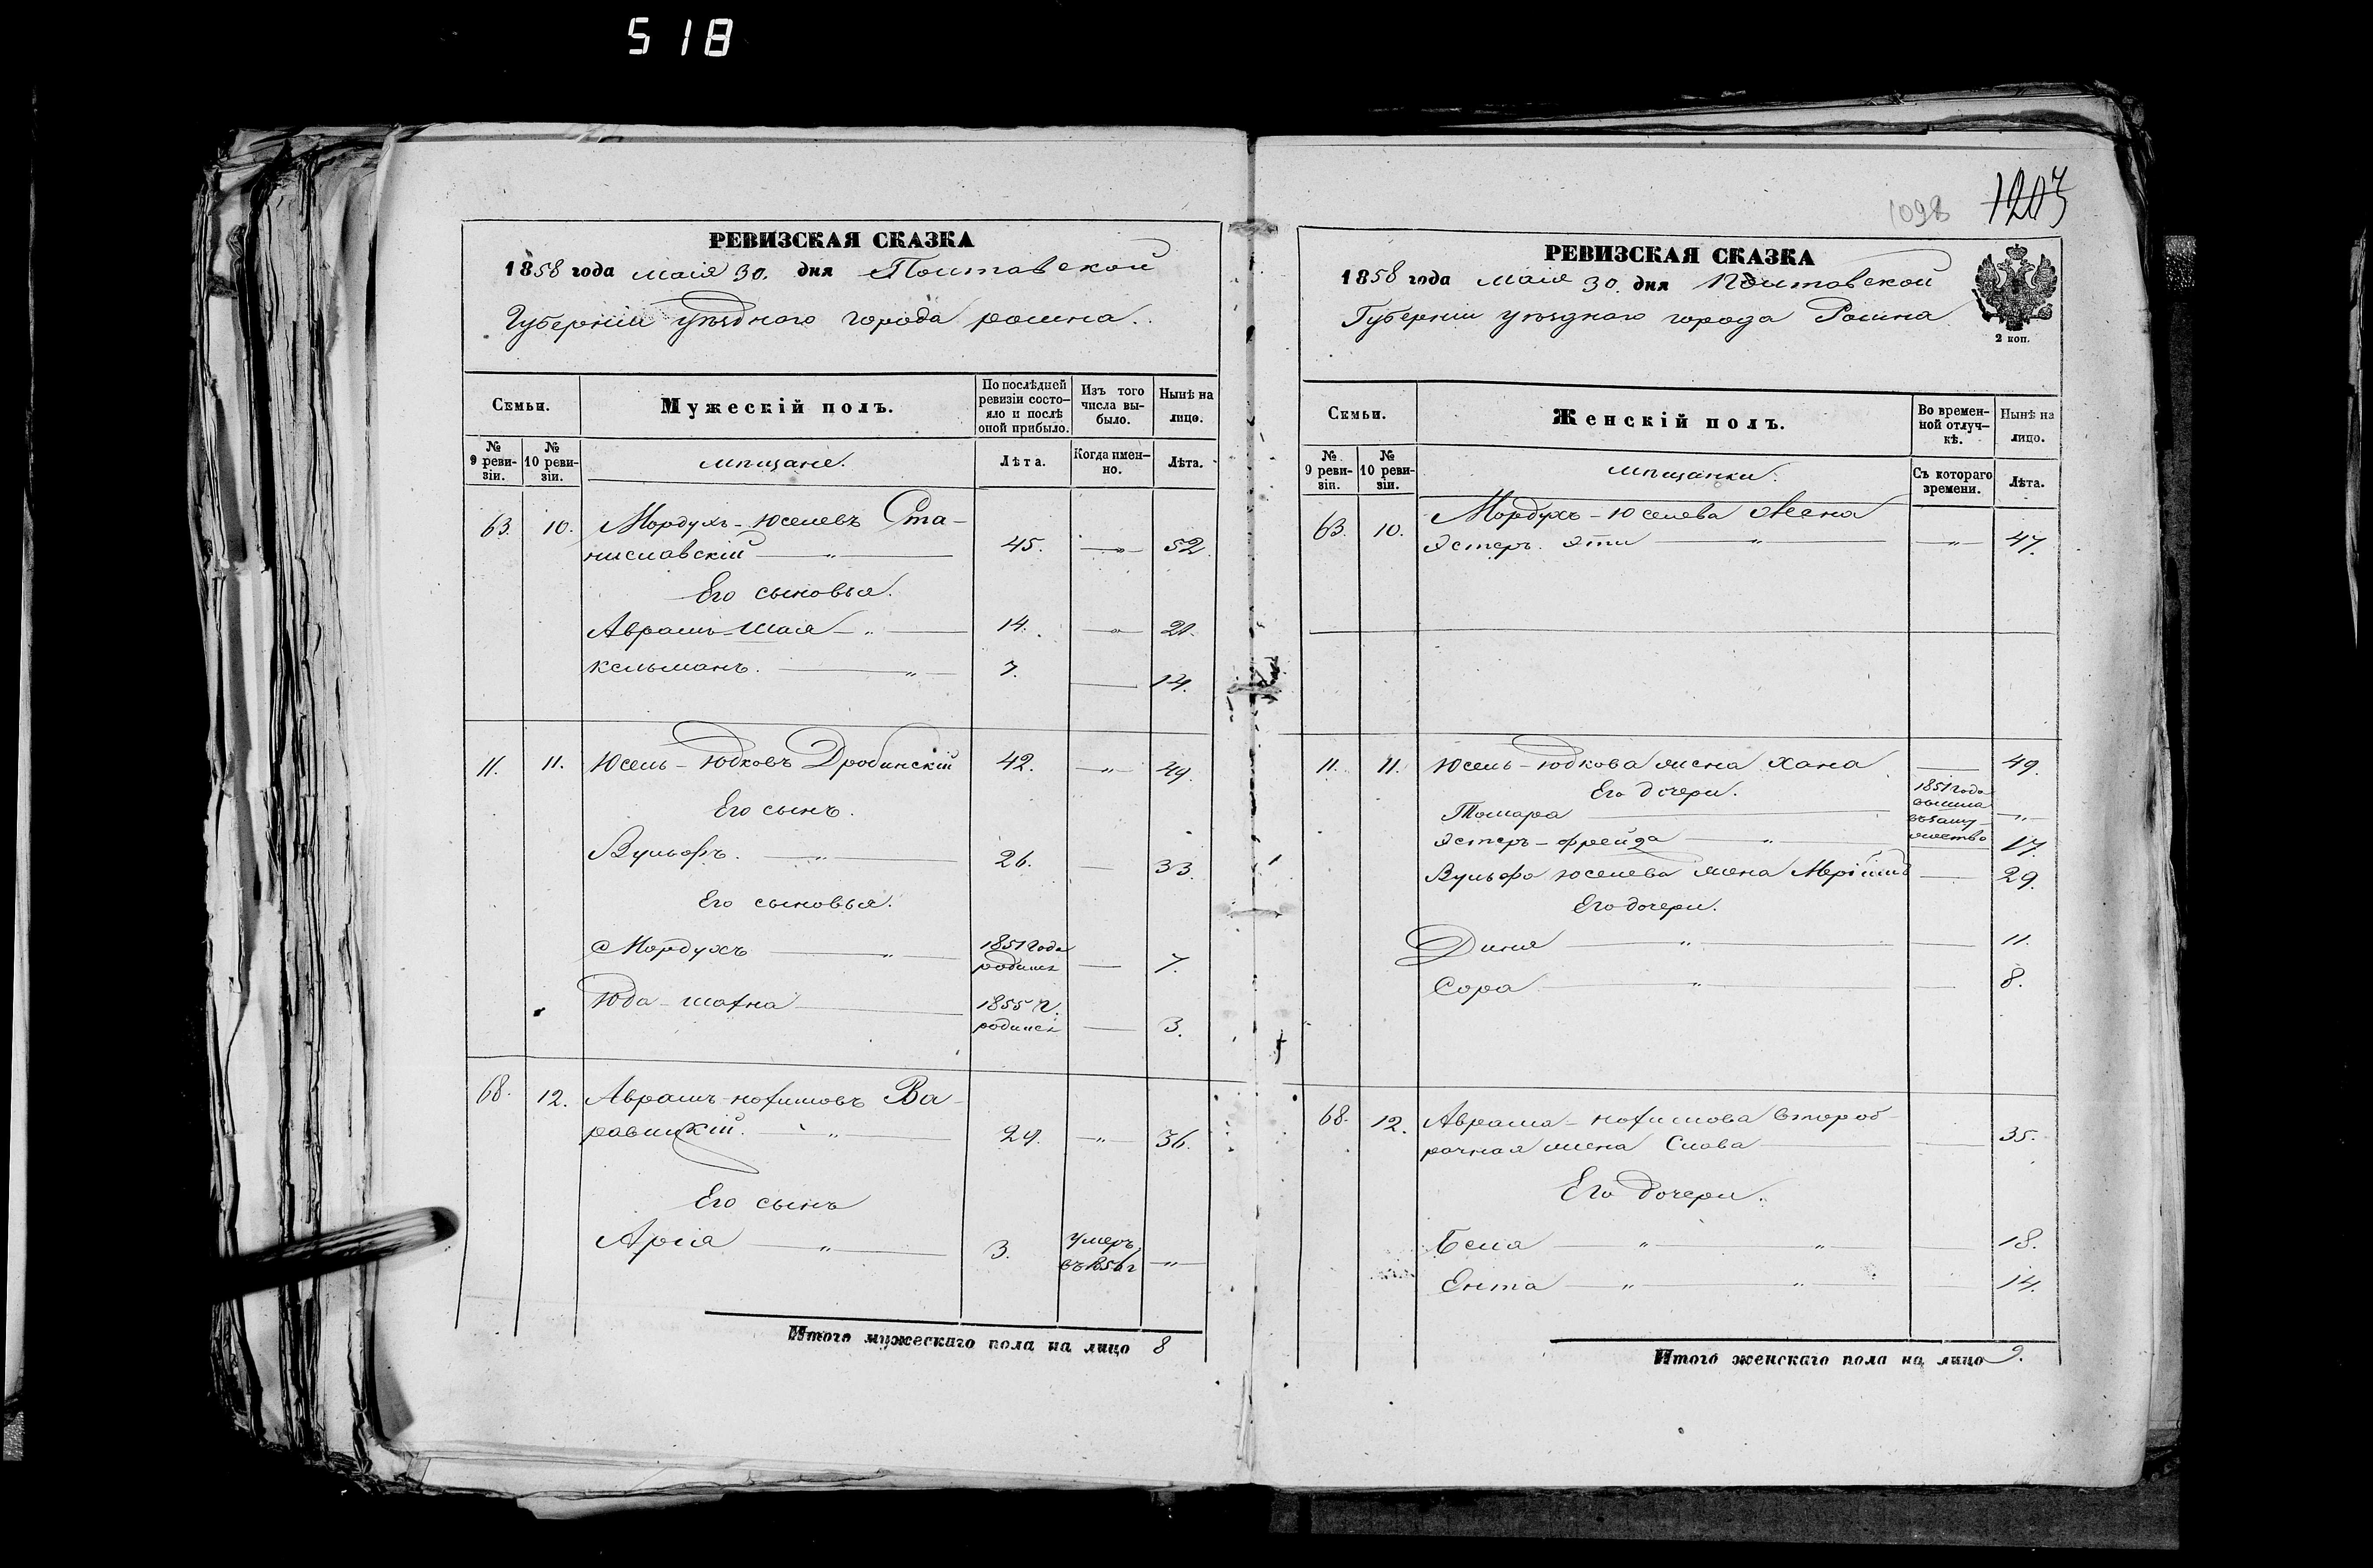 518
РЕВИЗСКАЯ СКАЗКА
1858 года маія 30. дня Полтавской
Губерніи уѣзднаго города ромна.
Семьи.
Мужескій полъ.
По послѣдней ревизіи состояло и послѣ оной прибыло.
Изъ того числа выбыло.
Нынѣ на лицо.
№ 9 ревизіи.
№ 10 ревизіи.
мѣщане.
Лѣта.
Когда именно.
Лѣта.
63. 10. Мордухъ-Юселевъ Ста-
ниславскій — " — 45. — " — 52.
Его сыновья.
Аврамъ-Шая — " — 14. — " — 21.
Кельманъ. — " — 7. — 14.
11. 11. Юсель-Юдковъ Дробинскій 42. — " — 49.
Его сынъ.
Вульфъ. — " — 26. — 33.
Его сыновья.
Мордухъ — " — 1851 года родился — 7.
Юда-шахна — 1855 г. родился — 3.
68. 12. Аврамъ-нохимовъ Ва-
равицкій. — " — 29. — " — 36.
Его сынъ
Арія — " — 3. умеръ въ 1856 г — " —
Итого мужескаго пола на лицо 8
1098 1207
РЕВИЗСКАЯ СКАЗКА
1858 года маія 30. дня Полтавской
Губерніи уѣзднаго города Ромна
2 коп.
Семьи.
Женскій полъ.
Во временной отлучкѣ.
Нынѣ на лицо.
№ 9 ревизіи.
№ 10 ревизіи.
мѣщанки.
Съ котораго времени.
Лѣта.
63. 10. Мордухъ-Юселева Жена
Эстеръ. Эти — " — — " — 47.
11. 11. Юсель-Юдкова жена Хана — 49.
Его дочери.
Томара — 1851 года вышла въ замужество — " —
Эстеръ-фрейда — " — 17.
Вульфа Юселева жена — 29.
Его дочери.
Диня — " — — 11.
Сора — " — — 8.
68. 12. Аврама-нохимова второб-
рачная жена Слава — 35.
Его дочери.
Бейла — " — " — — 18.
Ента — " — " — — 14.
Итого женскаго пола на лицо 9.